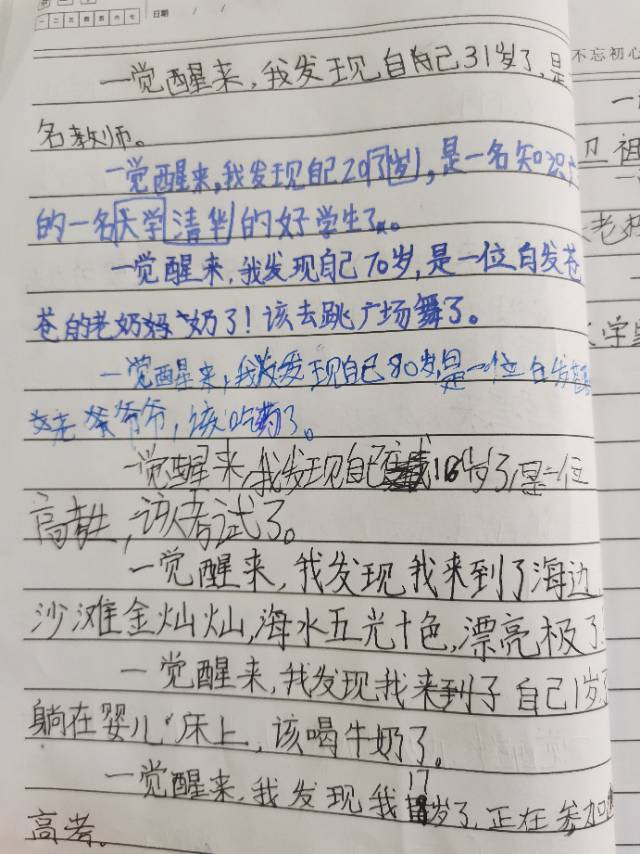 一 二 三 四 五 六 七 日期 / /
不忘初心
一觉醒来,我发现自己31岁了,是
名教师。
一觉醒来,我发现自己20了岁,是一名知识
的一名大学清华的好学生了。
一觉醒来,我发现自己70岁,是一位白发苍
苍的老奶奶了!该去跳广场舞了。
一觉醒来,我发现自己80岁,是一位白发
爷爷,该吃药了。
一觉醒来,我发现自己16岁了,是一位
高考生,该考试了。
一觉醒来,我发现我来到了海边
沙滩金灿灿,海水五光十色,漂亮极了
一觉醒来,我发现我来到了自己1岁了
躺在婴儿床上,该喝牛奶了。
一觉醒来,我发现我17岁了,正在参加
高考。
卫祖
老
学